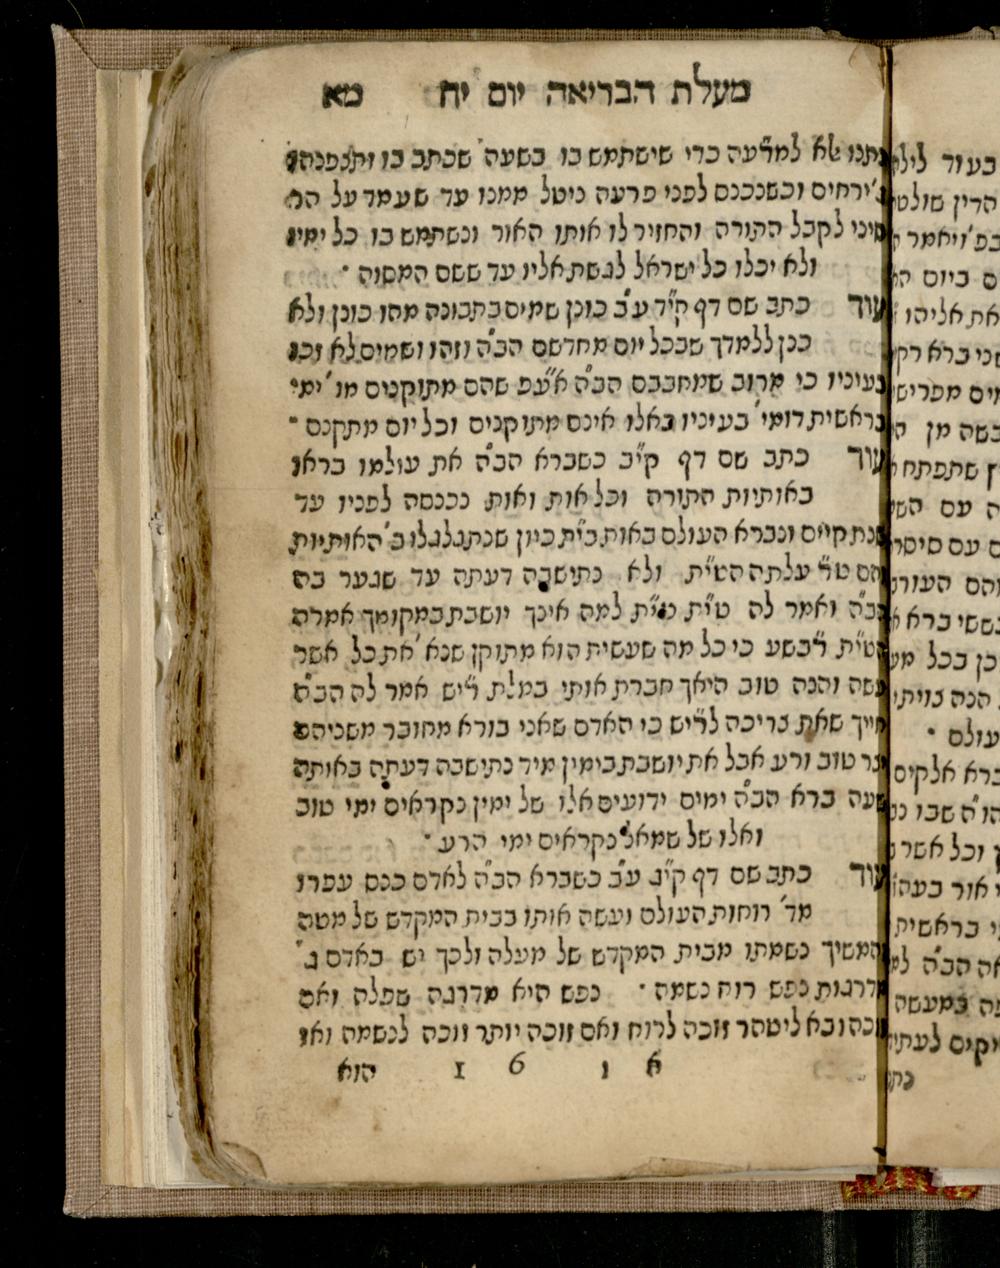 מעלת הבריאה יום יח מא
נתנו אלא למדעה כדי שישתמש בו בשעה שכתב בו ותצפנהו
ג'ירחים וכשנכנס לפני פרעה ניטל ממנו עד שעמד על הר
סיני לקבל התורה והחזיר לו אותו האור ונשתמש בו כל ימיו
ולא יכלו כל ישראל לגשת אליו עד ששם המסוה ֹ
עוד כתב שם דף ק"יד ע"ב כונן שמים בתבונה מהו כונן ולא
כנן ללמדך שבכל יום מחדשם הב"ה וזהו ושמים לא זכו
בעיניו כי מרוב שמחבבם הב"ה אע"פ שהם מתוקנים מו' ימי
בראשית דומי' בעיניו כאלו אינם מתוקנים וכל יום מתקנם ־
עוד כתב שם דף ק"יב כשברא הב"ה את עולמו בראו
באותיות התורה וכל אות ואות נכנסה לפניו עד
ונברא העולם באות בי"ת כיון שנתגלגלו ב' האותיות
הם ט"ר עלתה הטי"ת ולא נתישבה דעתה עד שגער בה
הב"ה ואמר לה טי"ת טי"ת למה אינך יושבת במקומך אמרה
הטי"ת רבשע כי כל מה שעשית הוא מתוקן שנא' את כל אשר
עשה והנה טוב היאך חברת אותי במלת רי"ש אמר לה הב"ה
חייך שאת צריכה לרי"ש כי האדם שאני בורא מחובר משניהם
יצר טוב ורע אבל את יושבת בימין מיד נתישבה דעתה באותה
שעה ברא הב"ה ימים ידועים אלו של ימין נקראים ימי טוב
ואלו של שמאל נקראים ימי הרע ֹ
עוד כתב שם דף ק"יג ע"ב כשברא הב"ה לאדם כנס עפרו
מד' רוחות העולם ועשה אותו בבית המקדש של מטה
והמשיך נשמתו מבית המקדש של מעלה ולכך יש באדם ג'
מדרגות נפש רוח נשמה ֹ נפש היא מדרגה שפלה ואם
זוכה ובא ליטהר זוכה לרוח ואם זוכה יותר זוכה לנשמה ואז
א ו 6 1 הוא
בעוד
הדין
ויאמר
ביום
את אליהו
ברא
מן
שתפתח
עם
עם סיסרא
ברא
בכל
הנה
עולם ֹ
ברא אלקים
שבו
וכל אשר
אור
בראשית
הב"ה
במעשה